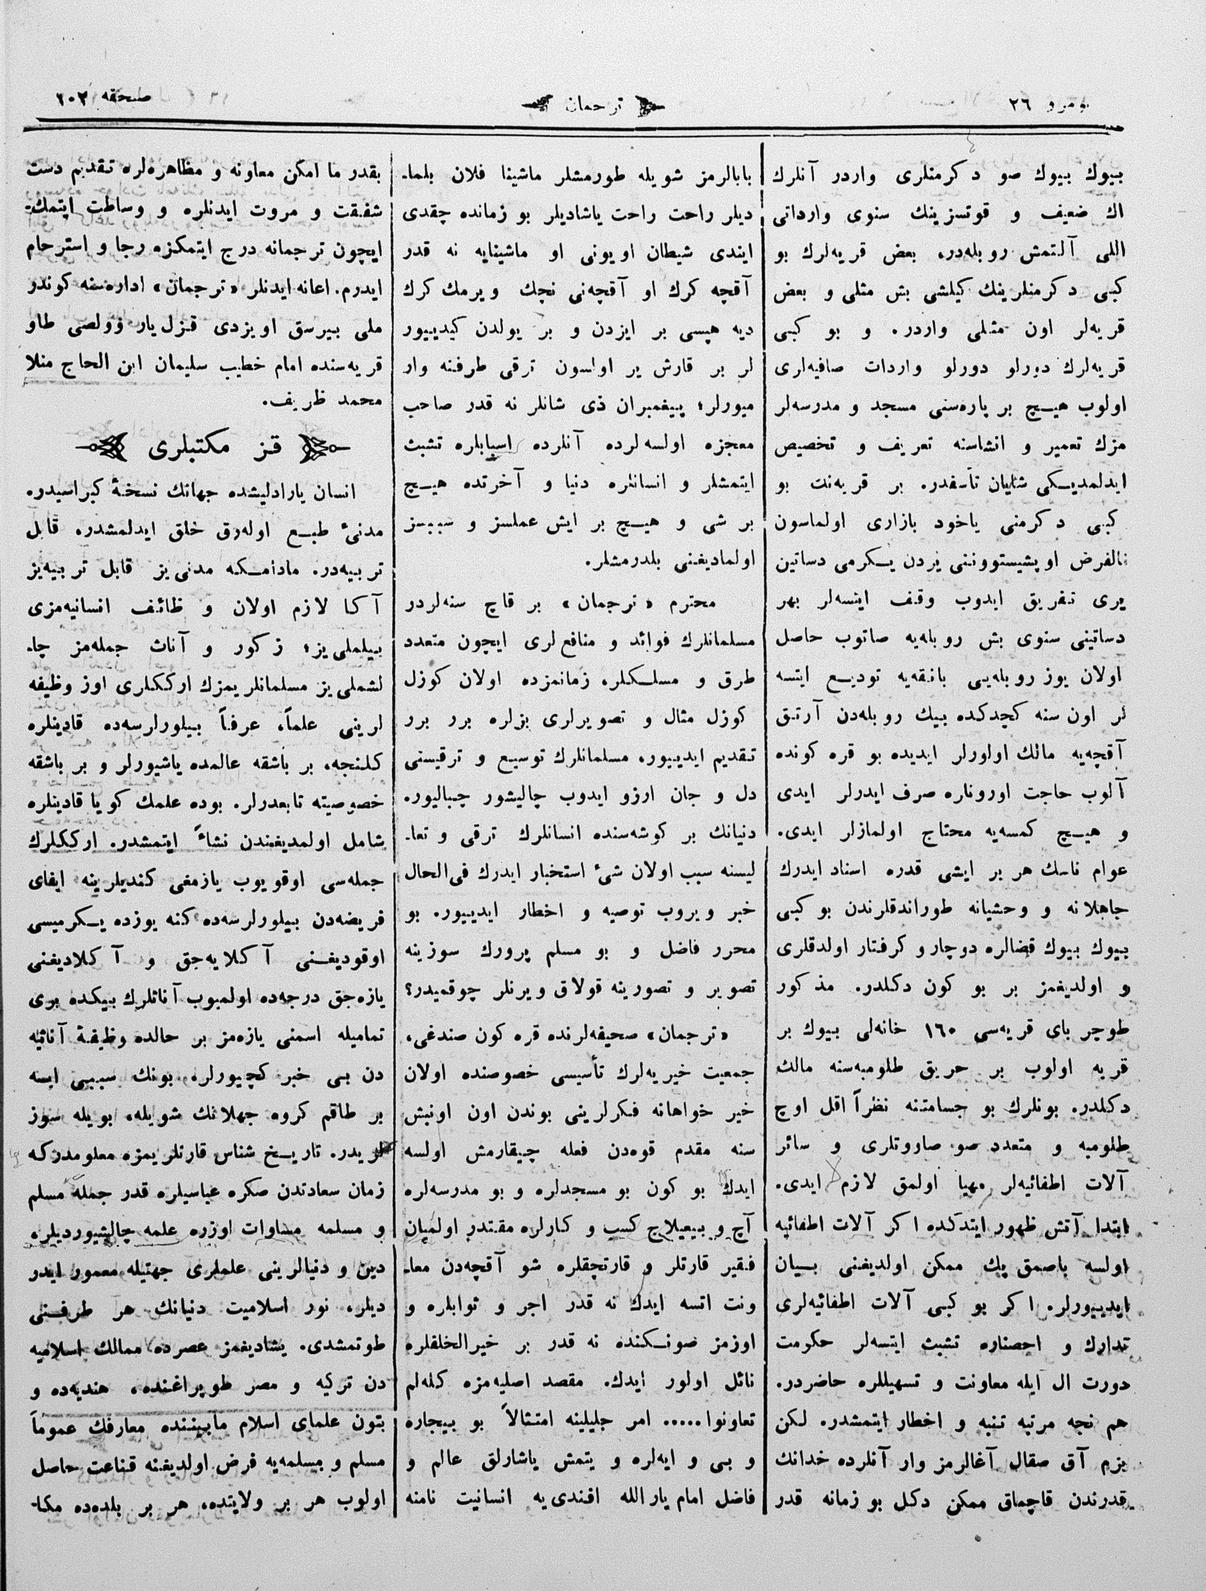 نومرو ٢٦
ترجمان
صحيفه ١٠٣
بيوك بيوك صو دكرمنلرى واردر آنلرك
اك ضعيف و قوتسزينك سنوى وارداتى
اللى آلتمش روبله‌در. بعض قريه‌لرك بو
كبى دكرمنلرينك كيلشى بش مثلى و بعض
قريه‌لر اون مثلى واردر. و بو كبى
قريه‌لرك دورلو دورلو واردات صافيه‌لرى
اولوب هيچ بر پاره‌سنى مسجد و مدرسه‌لر
مزك تعمير و انشاسنه تعريف و تخصيص
ايدلمديكى شايان تأسفدر. بر قريه‌نك بو
كبى دكرمنى ياخود بازارى اولماسون
بالفرض اوپشيستوونى يردن يكرمى دساتين
يرى تفريق ايدوب وقف ايتسه‌لر بهر
دساتينى سنوى بش روبله‌يه صاتوب حاصل
اولان يوز روبله‌يى بانقه‌يه توديع ايتسه
لر اون سنه كچدكده بيك روبله‌دن آرتق
آقچه‌يه مالك اولورلر ايديده بو قره كونده
آلوب حاجت اورونلره صرف ايدرلر ايدى
و هيچ كمسه‌يه محتاج اولمازلر ايدى.
عوام ناسك هر بر ايشى قدره اسناد ايدرك
جاهلانه و وحشيانه طوراندقلرندن بو كبى
بيوك بيوك قضالره دوچار و كرفتار اولدقلرى
و اولديغمز بر بو كون دكلدر. مذكور
طوچر باى قريه‌سى ١٦٠ خانه‌لى بيوك بر
قريه اولوب بر حريق طلومبه‌سنه مالك
دكلدر. بونلرك بو جسامتنه نظراً اقل اوچ
طلومبه و متعدد صو صاووتلرى و سائر
آلات اطفائيه‌لر مهيا اولمق لازم ايدى.
ابتدا آتش ظهور ايتدكده اكر آلات اطفائيه
اولسه باصمق پك ممكن اولديغنى بيان
ايدييورلر. اكر بو كبى آلات اطفائيه‌لرى
تدارك و احضاره تشبث ايتسه‌لر حكومت
دورت ال ايله معاونت و تسهيللره حاضردر.
هم نچه مرتبه تنبه و اخطار ايتمشدر. لكن
بزم آق صقال آغالرمز وار آنلرده خدانك
قدرندن قاچماق ممكن دكل بو زمانه قدر
بابالرمز شويله طورمشلر ماشينا فلان بلما‍ـ
ديلر راحت راحت ياشاديلر بو زمانده چقدى
ايندى شيطان اويونى او ماشينايه نه قدر
آقچه كرك او آقچه‌نى نچك ويرمك كرك
ديه هپسى بر ايزدن و بر يولدن كيدييور
لر بر قارش ير اولسون ترقى طرفنه وار
ميورلر؛ پيغمبران ذى شانلر نه قدر صاحب
معجزه اولسه‌لرده آنلرده اسبابلره تشبث
ايتمشلر و انسانلره دنيا و آخرتده هيچ
بر شى و هيچ بر ايش عملسز و سببسز
اولماديغنى بلدرمشلر.
محترم «ترجمان» بر قاچ سنه‌لردر
مسلمانلرك فوائد و منافع‌لرى ايچون متعدد
طرق و مسلكلر، زمانمزده اولان كوزل
كوزل مثال و تصويرلرى بزلره برر برر
تقديم ايدييور، مسلمانلرك توسيع و ترقيسنى
دل و جان ارزو ايدوب چاليشور چباليور.
دنيانك بر كوشه‌سنده انسانلرك ترقى و تعا‍ـ
ليسنه سبب اولان شئ استخبار ايدرك فى‌الحال
خبر ويروب توصيه و اخطار ايدييور. بو
محرر فاضل و بو مسلم پرورك سوزينه
تصوير و تصورينه قولاق ويرنلر چوقميدر؟
«ترجمان» صحيفه‌لرنده قره كون صندغى،
جمعيت خيريه‌لرك تأسيسى خصوصنده اولان
خير خواهانه فكرلرينى بوندن اون اونبش
سنه مقدم قوه‌دن فعله چيقارمش اولسه
ايدك بو كون بو مسجدلره و بو مدرسه‌لره
آچ و بيعيلاج كسب و كارلره مقتدر اولميان
فقير قارتلر و قارتچقلره شو آقچه‌دن معا‍ـ
ونت اتسه ايدك نه قدر اجر و ثوابلره و
اوزمز صونكنده نه قدر بر خيرالخلقلره
نائل اولور ايدك. مقصد اصليه‌مزه كله‌لم
تعاونوا..... امر جليلينه امتثالاً بو بيچاره
و بى و ايه‌لره و يتمش ياشارلق عالم و
فاضل امام يارالله افندى‌يه انسانيت نامنه
بقدر ما امكن معاونه و مظاهره‌لره تقديم دست
شفقت و مروت ايدنلره و وساطت ايتمك‍ـ
ايچون ترجمانه درج ايتمكزه رجا و استرحام
ايدرم. اعانه ايدنلر «ترجمان» اداره‌سنه كوندر
ملى بيرسق اويزدى قزل‌يار وولصى طاو
قريه‌سنده امام خطيب سليمان ابن الحاج منلا
محمد ظريف.
قز مكتبلرى
انسان يارادليشده جهانك نسخۀ كبراسيدر.
مدنىٔ طبع اوله‌رق خلق ايدلمشدر. قابل
تربيه‌در. مادامكه مدنى‌يز قابل تربيه‌يز
آكا لازم اولان و ظائف انسانيه‌مزى
بيلملى‌يز؛ زكور و آناث جمله‌مز چا‍ـ
لشملى‌يز مسلمانلريمزك ارككلرى اوز وظيفه
لرينى علماً، عرفاً بيلورلرسه‌ده قادينلره
كلنجه، بر باشقه عالمده ياشيورلر و بر باشقه
خصوصيته تابعدرلر. بوده علمك كويا قادينلره
شامل اولمديغندن نشاءً ايتمشدر. ارككلرك
جمله‌سى اوقويوب يازمغى كنديلرينه ايفاى
فريضه‌دن بيلورلرسه‌ده كنه يوزده يكرميسى
اوقوديغنى آكلايه‌جق و آكلاديغنى
يازه‌جق درجه‌ده اولميوب آناثلرك بيكده برى
تماميله اسمنى يازه‌مز بر حالده وظيفۀ آناثيه
دن بى خبر كچيورلر. بونك سببى ايسه
بر طاقم كروه جهلانك شويله، بويله سوز
لريدر. تاريخ شناس قارئلريمزه معلومدركه
زمان سعادتدن صكره عباسيلره قدر جملۀ مسلم
و مسلمه مساوات اوزره علمه چاليشيورديلر.
دين و دنيالرينى علملرى جهتيله معمور ايدر
ديلر، نور اسلاميت دنيانك هر طرفنى
طوتمشدى. يشاديغمز عصرده ممالك اسلاميه
دن تركيه و مصر طوپراغنده، هنديه‌ده و
بتون علماى اسلام مابيننده معارفك عموماً
مسلم و مسلمه‌يه فرض اولديغنه قناعت حاصل
اولوب هر بر ولايتده، هر بر بلده‌ده مكا‍ـ